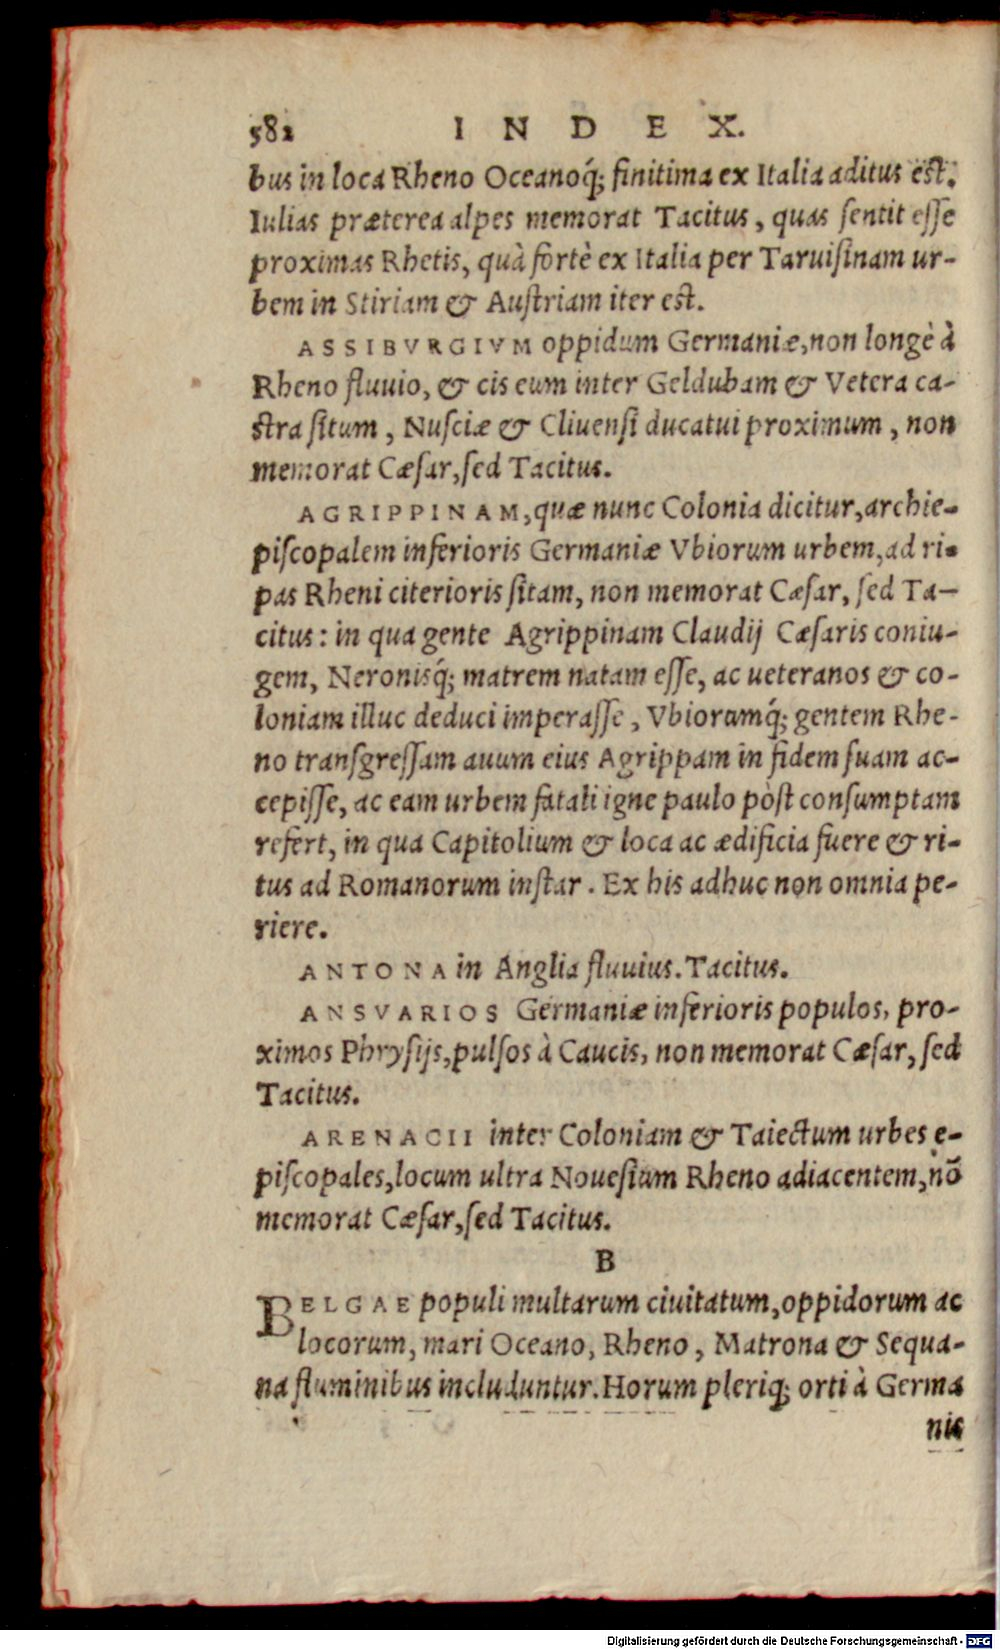 582 INDEX.
bus in loca Rheno Oceanoq́; finitima ex Italia aditus est.
Iulias præterea alpes memorat Tacitus, quas sentit esse
proximas Rhetis, quà fortè ex Italia per Taruisinam ur-
bem in Stiriam & Austriam iter est.
ASSIBVRGIVM oppidum Germaniæ, non longè à
Rheno fluuio, & cis eum inter Geldubam & Vetera ca-
stra situm, Nusciæ & Cliuensi ducatui proximum, non
memorat Cæsar, sed Tacitus.
AGRIPPINAM, quæ nunc Colonia dicitur, archie-
piscopalem inferioris Germaniæ Vbiorum urbem, ad ri-
pas Rheni citerioris sitam, non memorat Cæsar, sed Ta-
citus: in qua gente Agrippinam Claudij Cæsaris coniu-
gem, Neronisq́; matrem natam esse, ac ueteranos & co-
loniam illuc deduci imperasse, Vbiorumq́; gentem Rhe-
no transgressam auum eius Agrippam in fidem suam ac-
cepisse, ac eam urbem fatali igne paulo pòst consumptam
refert, in qua Capitolium & loca ac ædificia fuere & ri-
tus ad Romanorum instar. Ex his adhuc non omnia pe-
riere.
ANTONA in Anglia fluuius. Tacitus.
ANSVARIOS Germaniæ inferioris populos, pro-
ximos Phrysijs, pulsos à Caucis, non memorat Cæsar, sed
Tacitus.
ARENACII inter Coloniam & Taiectum urbes e-
piscopales, locum ultra Nouesium Rheno adiacentem, nõ
memorat Cæsar, sed Tacitus.
B
BELGAE populi multarum ciuitatum, oppidorum ac
locorum, mari Oceano, Rheno, Matrona & Sequa-
na fluminibus includuntur. Horum pleriq; orti à Germa
nis
Digitalisierung gefördert durch die Deutsche Forschungsgemeinschaft - DFG